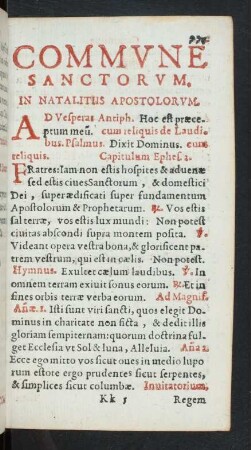 COMMVNE
SANCTORVM.
IN NATALITIIS APOSTOLORVM.
AD Vesperas Antiph. Hoc est præce-
ptum meũ. cum reliquis de Laudi-
bus. Psalmus. Dixit Dominus. cum
reliquis. Capitulum Ephes. 2.
FRatres: Iam non estis hospites & aduenæ
sed estis ciues Sanctorum, & domestici
Dei, superædificati super fundamentum
Apostolorum & Prophetarum. ℟. Vos estis
sal terræ, vos estis lux mundi: Non potest
ciuitas abscondi supra montem posita. ℣.
Videant opera vestra bona, & glorificent pa-
trem vestrum, qui est in cælis. Non potest.
Hymnus. Exultet cælum laudibus. ℣. In
omnem terram exiuit sonus eorum. ℟. Et in
fines orbis terræ verba eorum. Ad Magnif.
Añæ. 1. Isti sunt viri sancti, quos elegit Do-
minus in charitate non ficta, & dedit illis
gloriam sempiternam: quorum doctrina ful-
get Ecclesia vt Sol & luna, Alleluia. Aña 2.
Ecce ego mitto vos sicut oues in medio lupo
rum estote ergo prudentes sicut serpentes,
& simplices sicut columbæ. Inuitatorium,
Kk 5 Regem